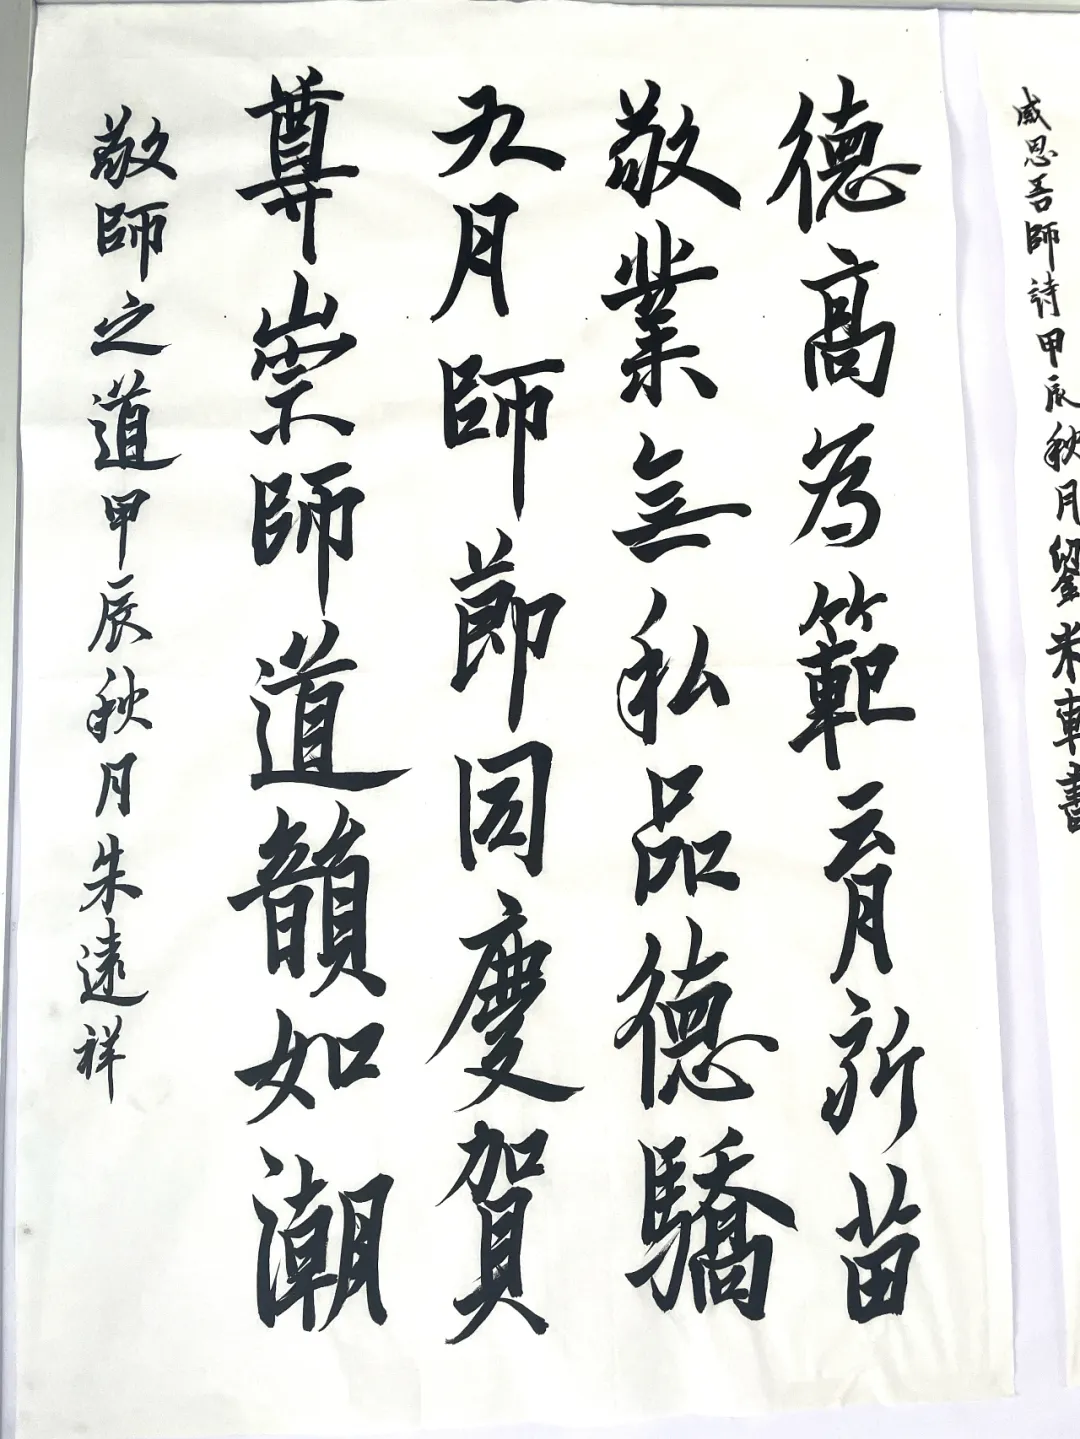 德高為範育新苗
敬業無私品德驕
九月師節同慶賀
尊崇師道韻如潮
敬師之道甲辰秋月朱遠祥
感恩吾師詩甲辰秋月劉米軒書